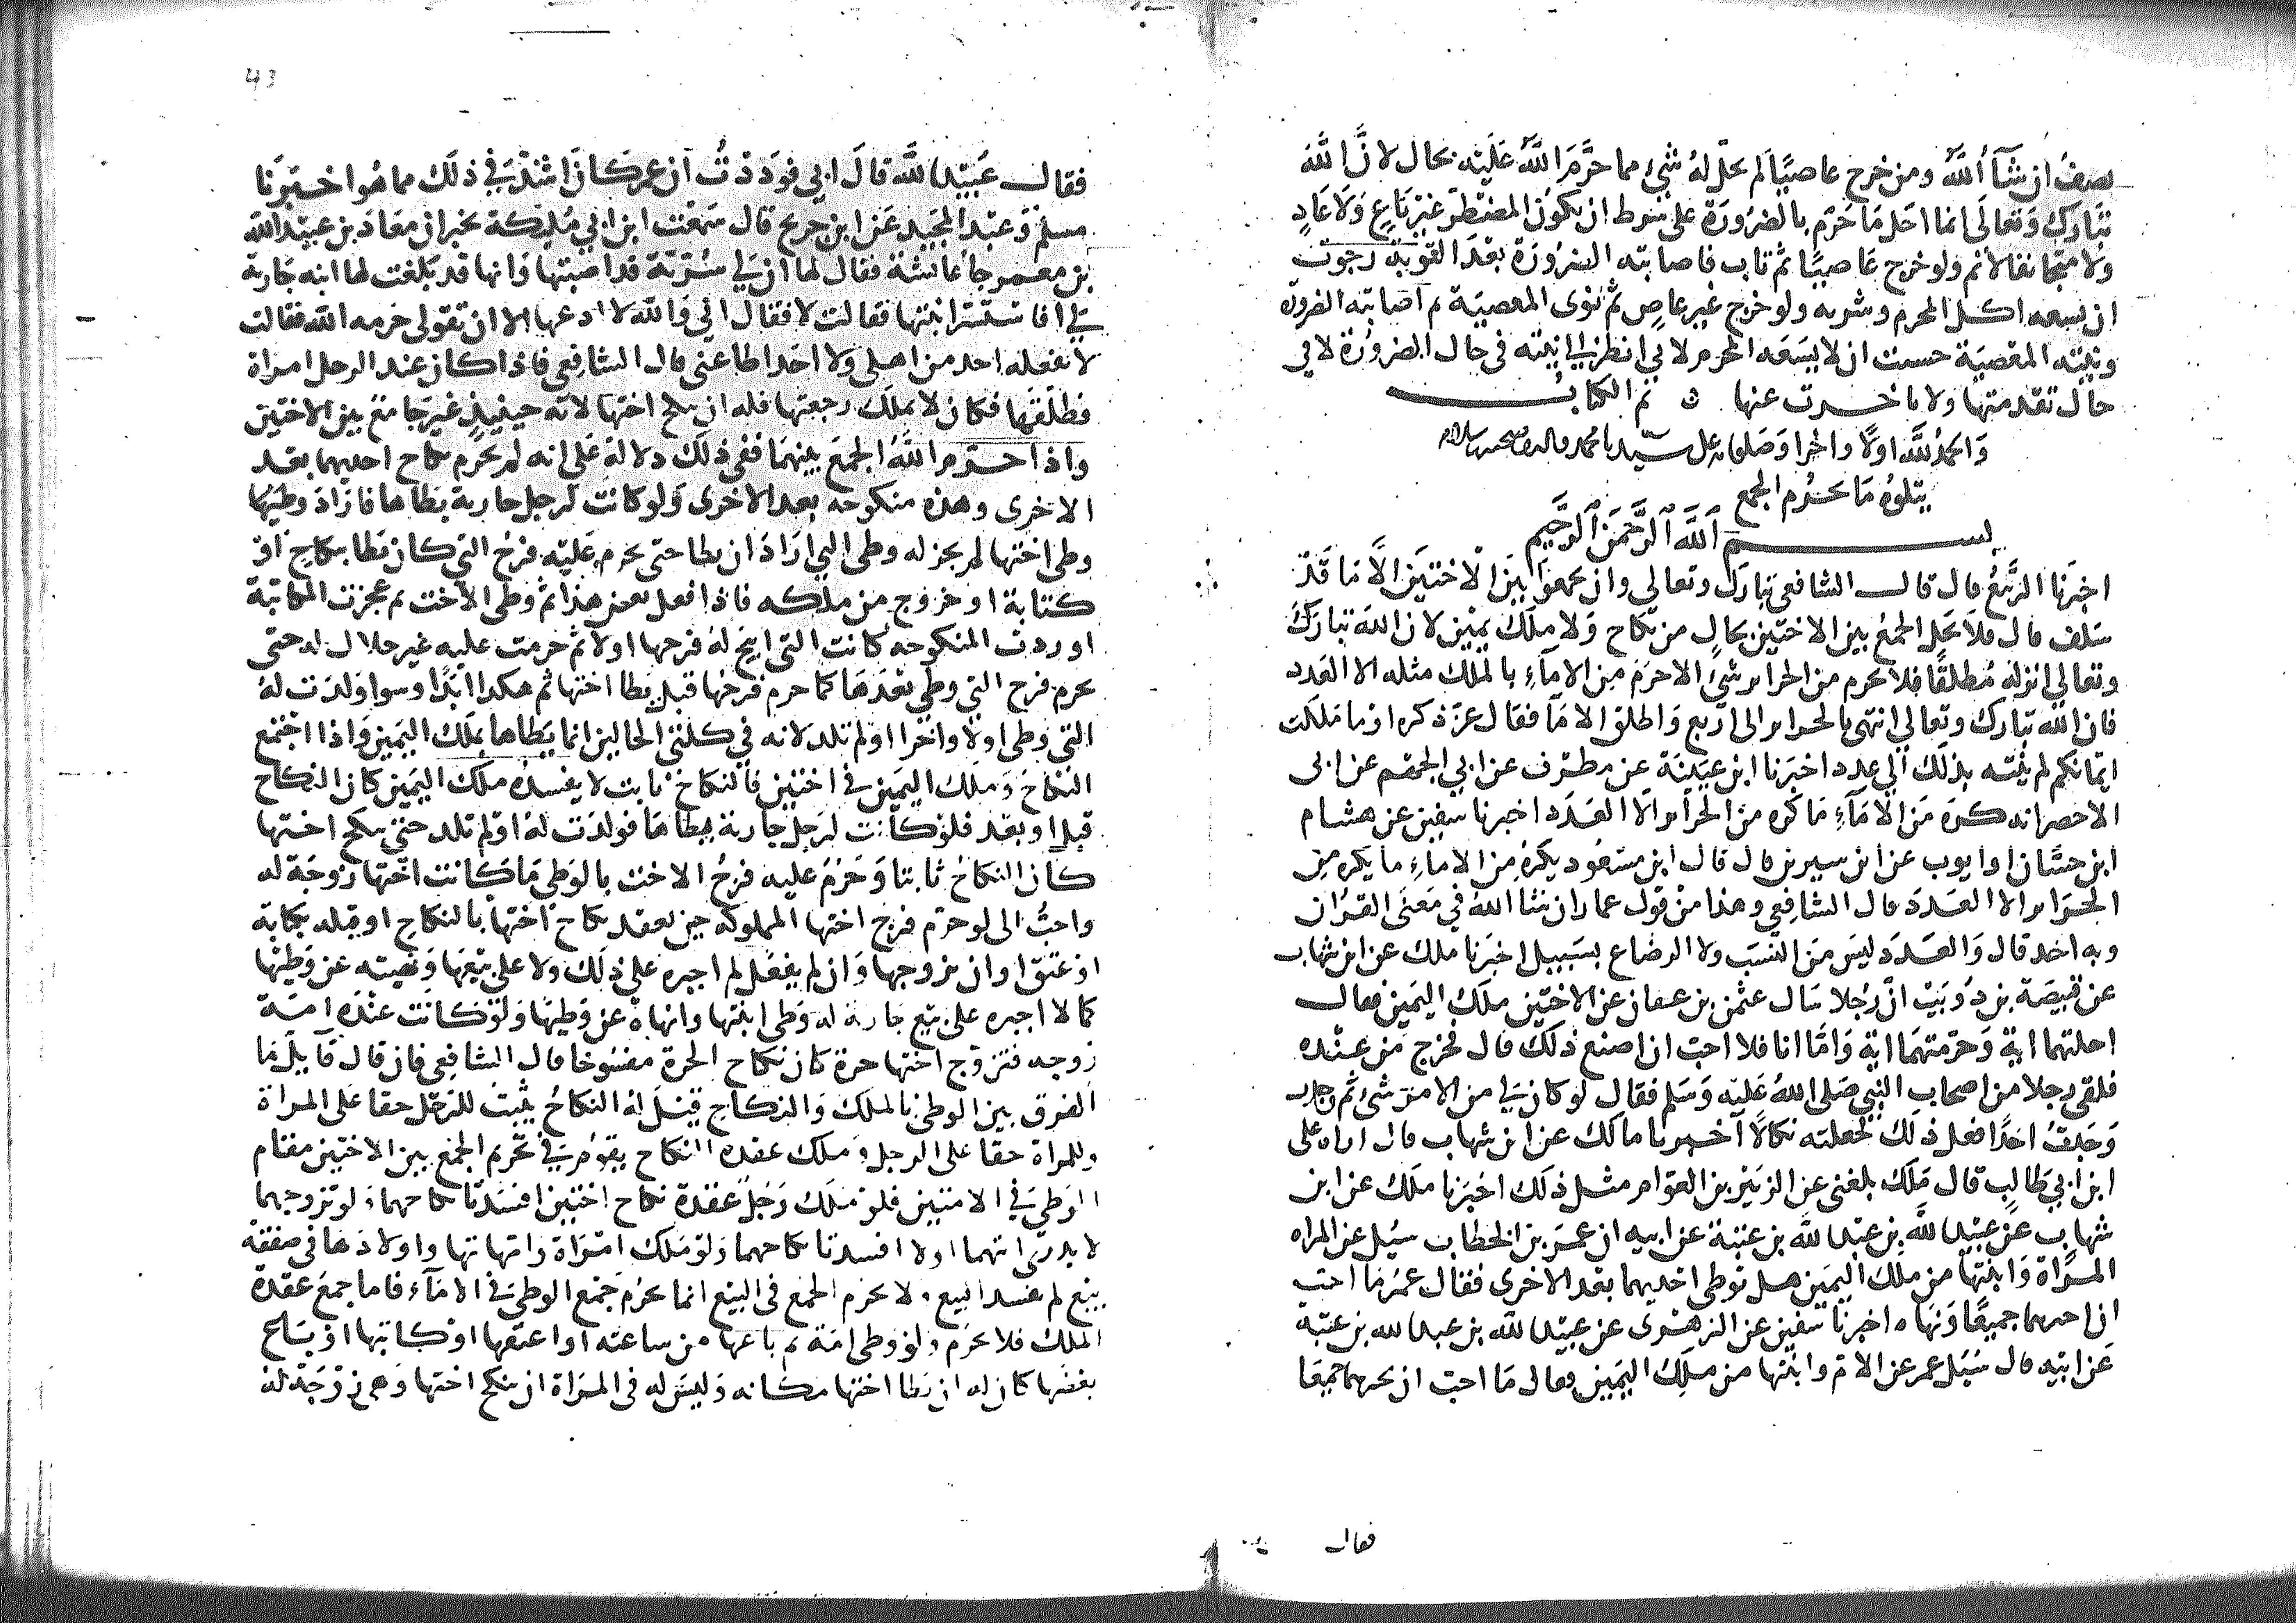 نصف ان شآ الله ومن خرج عاصيًا لم يحل له شئ مما حرَّم الله عليه بحال لانَّ الله
تبارك وتعالى انما احل ما حرم بالضرورة على شرط ان يكون المضطر غير باغٍ ولا عادٍ
ولا متجانف لاثم ولو خرج عاصيًا ثم تاب فاصابته الضرورة بعد التوبة رجوت
ان يسعه اكل المحرم وشربه ولو خرج غير عاصٍ ثم نوى المعصية ثم اصابته الضرورة
ونيته المعصية حسبت ان لا يسعه المحرم لاني انظر الى نيته في حال الضرورة لا في
حال تقدمتها ولا تاخرت عنها ثم الكتاب
والحمد لله اولا واخرا وصلى الله على سيدنا محمد واله وصحبه وسلامه
يتلوه ما يحرم الجمع
بسم الله الرحمن الرحيم
اخبرنا الربيع قال قال الشافعي تبارك وتعالى وان تجمعوا بين الاختين الا ما قد
سلف قال فلا يحل الجمع بين الاختين بحال من نكاح ولا ملك يمين لان الله تبارك
وتعالى انزله مطلقًا فلا يحرم من الحرائر شئ الا حرم من الامآء بالملك مثله الا العدد
فان الله تبارك وتعالى انتهى بالحرائر الى اربع واطلق الامآ فقال عز ذكره او ما ملكت
ايمانكم لم ينته بذلك الى عدد اخبرنا ابن عيينة عن مطرف عن ابي الجهم عن ابي
الاخضر انه كره من الامآء ما كره من الحرائر الا العدد اخبرنا سفين عن هشام
ابن حسَّان او ايوب عن ابن سيرين قال قال ابن مسعود يكره من الاماء ما يكره من
الحرائر الا العدد قال الشافعي وهذا من قول عمار ان شا الله في معنى القرآن
وبه اخذ قال والعدد ليس من النسب ولا الرضاع بسبيل اخبرنا ملك عن ابن شهاب
عن قبيصة بن ذويب ان رجلا سال عثمن بن عفان عن الاختين ملك اليمين فقال
احلتهما اية وحرمتهما اية وامّا انا فلا احب ان اصنع ذلك قال فخرج من عنده
فلقى رجلا من اصحاب النبي صلى الله عليه وسلم فقال لو كان لي من الامر شئ ثم
وجدت احدًا فعل ذلك لجعلته نكالا اخبرنا مالك عن ابن شهاب قال اراه على
ابن ابي طالب قال ملك بلغني عن الزبير بن العوام مثل ذلك اخبرنا ملك عن ابن
شهاب عن عبيد الله بن عبد الله بن عتبة عن ابيه ان عمر بن الخطاب سئل عن المراه
المراة وابنتها من ملك اليمين هل توطى احديهما بعد الاخرى فقال عمر ما احب
ان اخبرهما جميعًا ونهاه اخبرنا سفين عن الزهري عن عبيد الله بن عبد الله بن عتبة
عن ابيه قال سئل عمر عن الام وابنتها من ملك اليمين فقال ما احب ان يجيزهما جميعا
فقال
43
فقال عبيد الله قال ابي فوددت ان عمر كان اشد في ذلك مما هو اخبرنا
مسلم وعبد المجيد عن ابن جريج قال سمعت ابن ابي مليكة يخبر ان معاذ بن عبيد الله
بن معمر جا عايشة فقال لها ان لي سرية قد اصبتها وانها قد بلغت لها ابنه جارية
لي افاستسر ابنتها فقالت لا فقال اني والله لا ادعها الا ان تقولى حرمه الله فقالت
لا يفعله احد من اهلي ولا احد اطاعني قال الشافعي فاذا كان عند الرجل امراة
فطلقها فكان لا يملك رجعتها فله ان ينكح اختها لانه حينيذ غير جامع بين الاختين
واذا حرم الله الجمع بينهما ففي ذلك دلالة على انه لم يحرم نكاح احديهما بعد
الاخرى وهذه منكوحه بعد الاخرى ولو كانت لرجل جارية يطاها فاراد وطيها
وطى اختها لم يجز له وطى التي اراد ان يطا حتى يحرم عليه فرج التي كان يطا بنكاح او
كتابة او خروج من ملكه فاذا فعل بعض هذا ثم وطى الاخت ثم عجزت المكاتبة
او ردت المنكوحه كانت التي ابيح له فرجها اولا ثم حرمت عليه غير حلال له حتى
يحرم فرج التي وطى بعدها كما حرم فرجها قبل يطا اختها ثم هكذا ابدًا وسوا ولدت له
التي وطى اولا واخرا او لم تلد لانه في كلتي الحالين انما يطاها بملك اليمين واذا اجتمع
النكاح وملك اليمين في اختين فالنكاح ثابت لا يفسده ملك اليمين كان النكاح
قبل او بعد فلو كانت لرجل جارية يطاها فولدت له او لم تلد حتى ينكح اختها
كان النكاح ثابتا وحرم عليه فرج الاخت بالوطى ما كانت اختها زوجة له
واحبُّ الى لو حرم فرج اختها المملوكة حين يعقد نكاح اختها بالنكاح او قبله بكتابة
او عتق او ان يزوجها وان لم يفعل لم اجبره على ذلك ولا على بيعها ونهيته عن وطيها
كما لا اجبره على بيع جارية له وطى ابنتها وانهاه عن وطيها ولو كانت عنده امة
زوجه فتزوج اختها حرة كان نكاح الحرة مفسوخا قال الشافعي فان قال قايل ما
الفرق بين الوطى بالملك والنكاح قيل له النكاح يثبت للرجل حقا على المراة
وللمراة حقا على الرجل وملك عقدة النكاح يقوم في تحريم الجمع بين الاختين مقام
الوطى في الامتين فلو ملك رجل عقدة نكاح اختين افسدنا نكاحهما ولو تزوجهما
لا يدرى ايتهما اولا افسدنا نكاحهما ولو ملك امراة وامهاتها واولادها في صفقة
بيع لم نفسد البيع ولا يحرم الجمع في البيع انما يحرم جمع الوطى في الامآء فاما جمع عقدة
الملك فلا يحرم ولو وطى امة ثم باعها من ساعته او اعتقها او كاتبها او يساع
بعضها كان له ان يطا اختها مكانه وليس له في المراة ان ينكح اختها وهي زوجة له